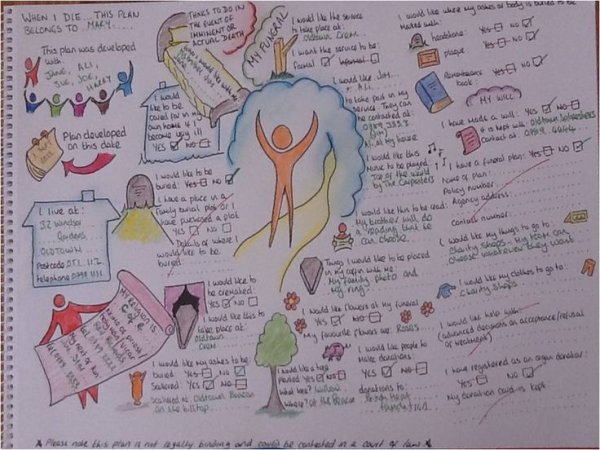 WHEN I DIE... THIS PLAN
BELONGS TO MARY.....
This plan was developed
with:
JANE, ALI,
SUE, JOE,
HARRY
Plan developed
on this date
THINGS TO DO IN
THE EVENT OF
IMMINENT OR
ACTUAL DEATH
I would
like to be
cared for in my
own home if I
become very ill
YES NO
I would like to be
buried: YES NO
I have a place in a
family burial plot or I
have purchased a plot
YES NO
Details of where I
would like to be
buried
I live at:
Gardens
OLDTOWN
Postcode
telephone
My Religion is
C of E
I would like
to be
cremated:
YES NO
I would like this to
take place at
oldtown
Crem
I would like my ashes to be:
Buried YES NO
Scattered YES NO
Scattered at Oldtown Beacon
on the hilltop
MY FUNERAL
I would like the service
to take place at:
Oldtown Crem
I want the service to be:
Formal Informal
I would like
to take part in
my service. They can
be contacted at:
At my house
I would like this
Music to be played
Top of the world
by The Carpenters
I would like this to be read:
My brother will do
a reading that he
can choose
Things I would like to be placed
in my coffin with me
My family photo and
my ring
I would like flowers at my funeral
YES NO
My favourite flowers are: Roses
I would like people to
make donations
donations to:
British Heart
Foundation
I would like a tree
Planted YES NO
What tree? Willow
Where? At the Beacon
I would like where my ashes or body is buried to be
Marked with:
headstone: YES NO
plaque YES NO
Remembrance
book: YES NO
MY WILL
I have made a will: YES NO
It is kept with Oldtown Solicitors
Contact at:
I have a funeral plan: YES NO
Name of Plan:
Policy number
Agency address
contact number
I would like my things to go to:
Charity Shops - my team can
choose whatever they want
I would like my clothes to go to:
Charity Shops
I would like help with
(advanced decisions on acceptance/refusal
of treatment)
I have registered as an organ donator:
YES NO
My donation card is kept
Please note this plan is not legally binding and could be contested in a court of law